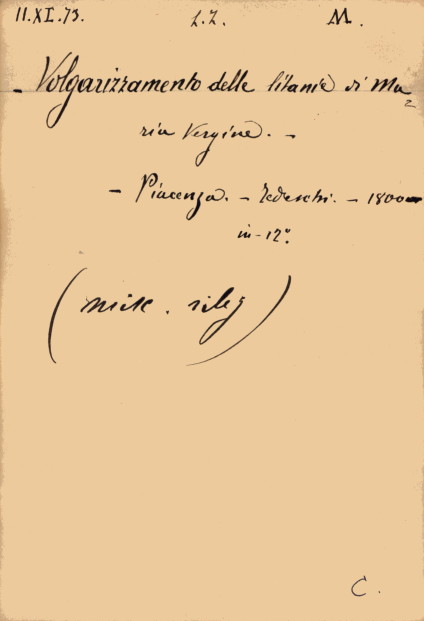 11.XI.73. L.Z. M.
- Volgarizzamento delle litanie di Ma=
ria Vergine. -
- Piacenza. - Tedeschi. - 1800 -
in-12°.
(misc. rileg)
C.